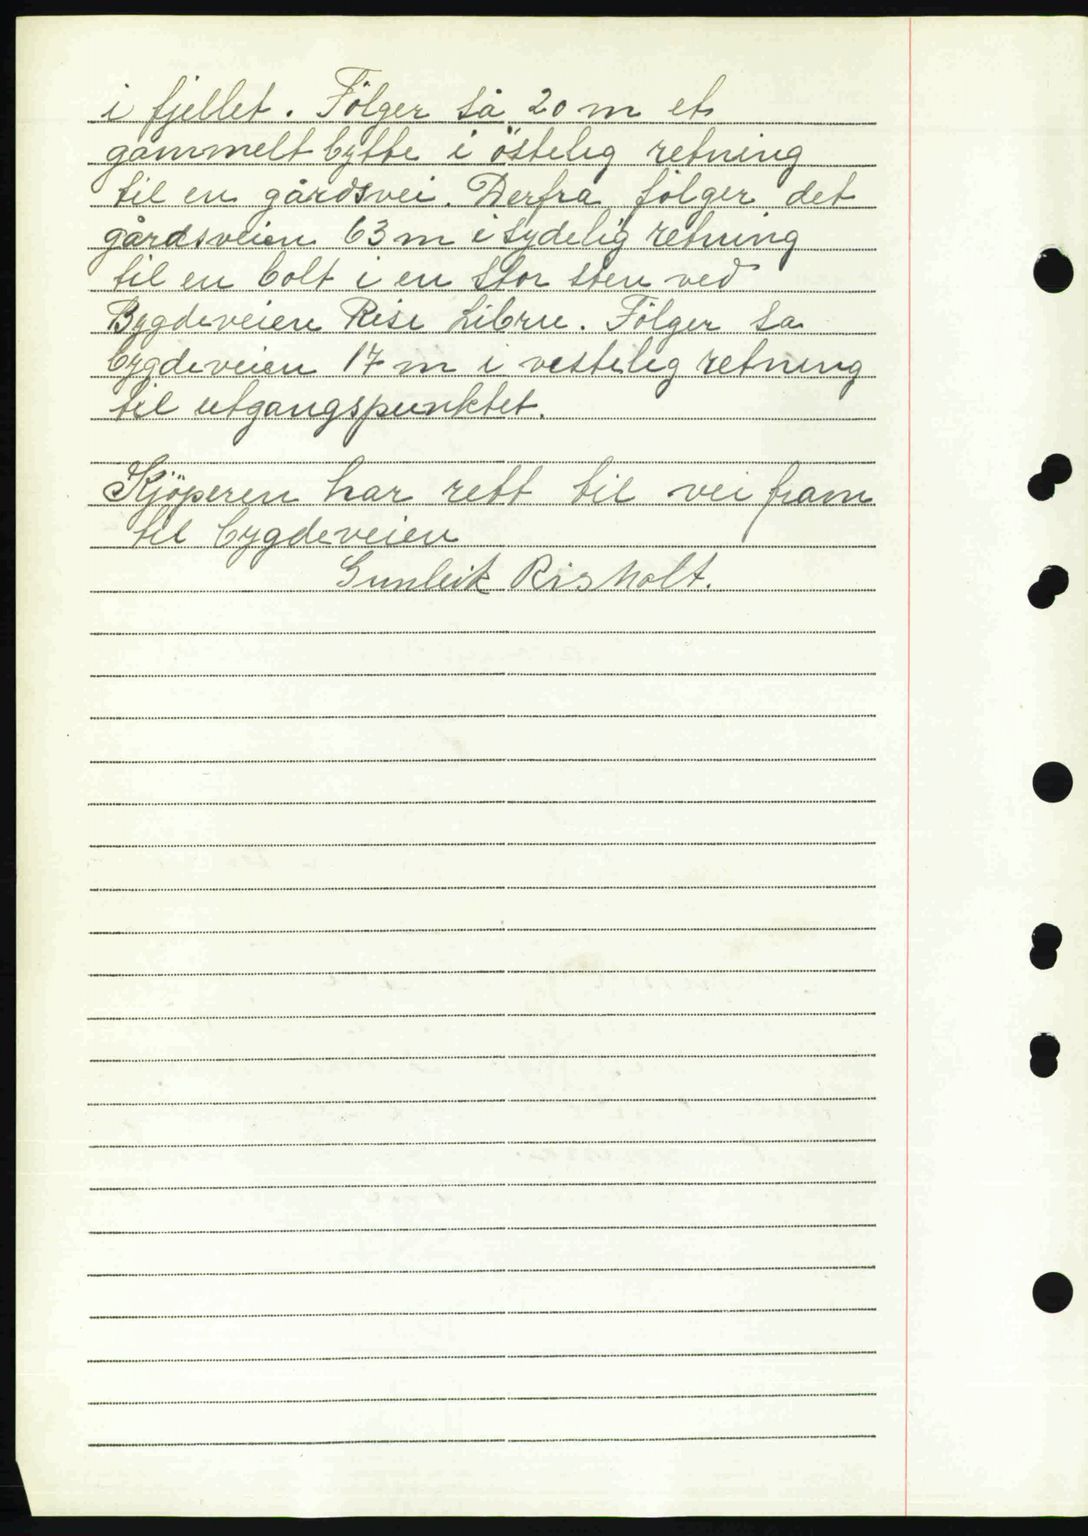 i fjellet. Fölger så 20 m et
gammelt bytte i östelig retning
til en gårdsvei. Derfra fölger det
gårdsveien 63 m i sydelig retning
til en bolt i en stor sten ved
Bygdeveien Rise Libru. Fölger så
bygdeveien 17 m i vestelig retning
til utgangspunktet.
Kjöperen har rett til vei fram
til bygdeveien
Gunleik Risholt.